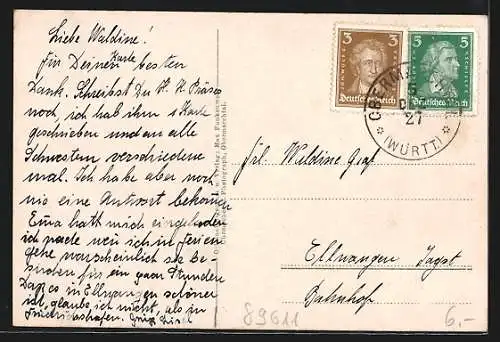 Liebe Waldine!
Für Deine Karte besten
Dank. Schreibst Du H. H. Präses
noch, ich hab ihm 1 Karte
geschrieben und an alle
Schwestern verschiedene
mal. Ich habe aber noch
nie eine Antwort bekommen
Erna hatt mich eingeladen
ich in Ferien
gehe warscheinlich sie be-
suchen für ein paar Stunden
Das es in Ellwangen schöner
ist, glaube ich nicht, als in
Friedrichshafen. Gruß Lisel
Verlag: Max
Photograph, Obermarchtal.
3 3
Deutsches Reich
5 5
Deutsches Reich
OBERMA
27
(WÜRTT)
Frl. Waldine Graf
Ellwangen Jagst
Bahnhof
89611
6.-